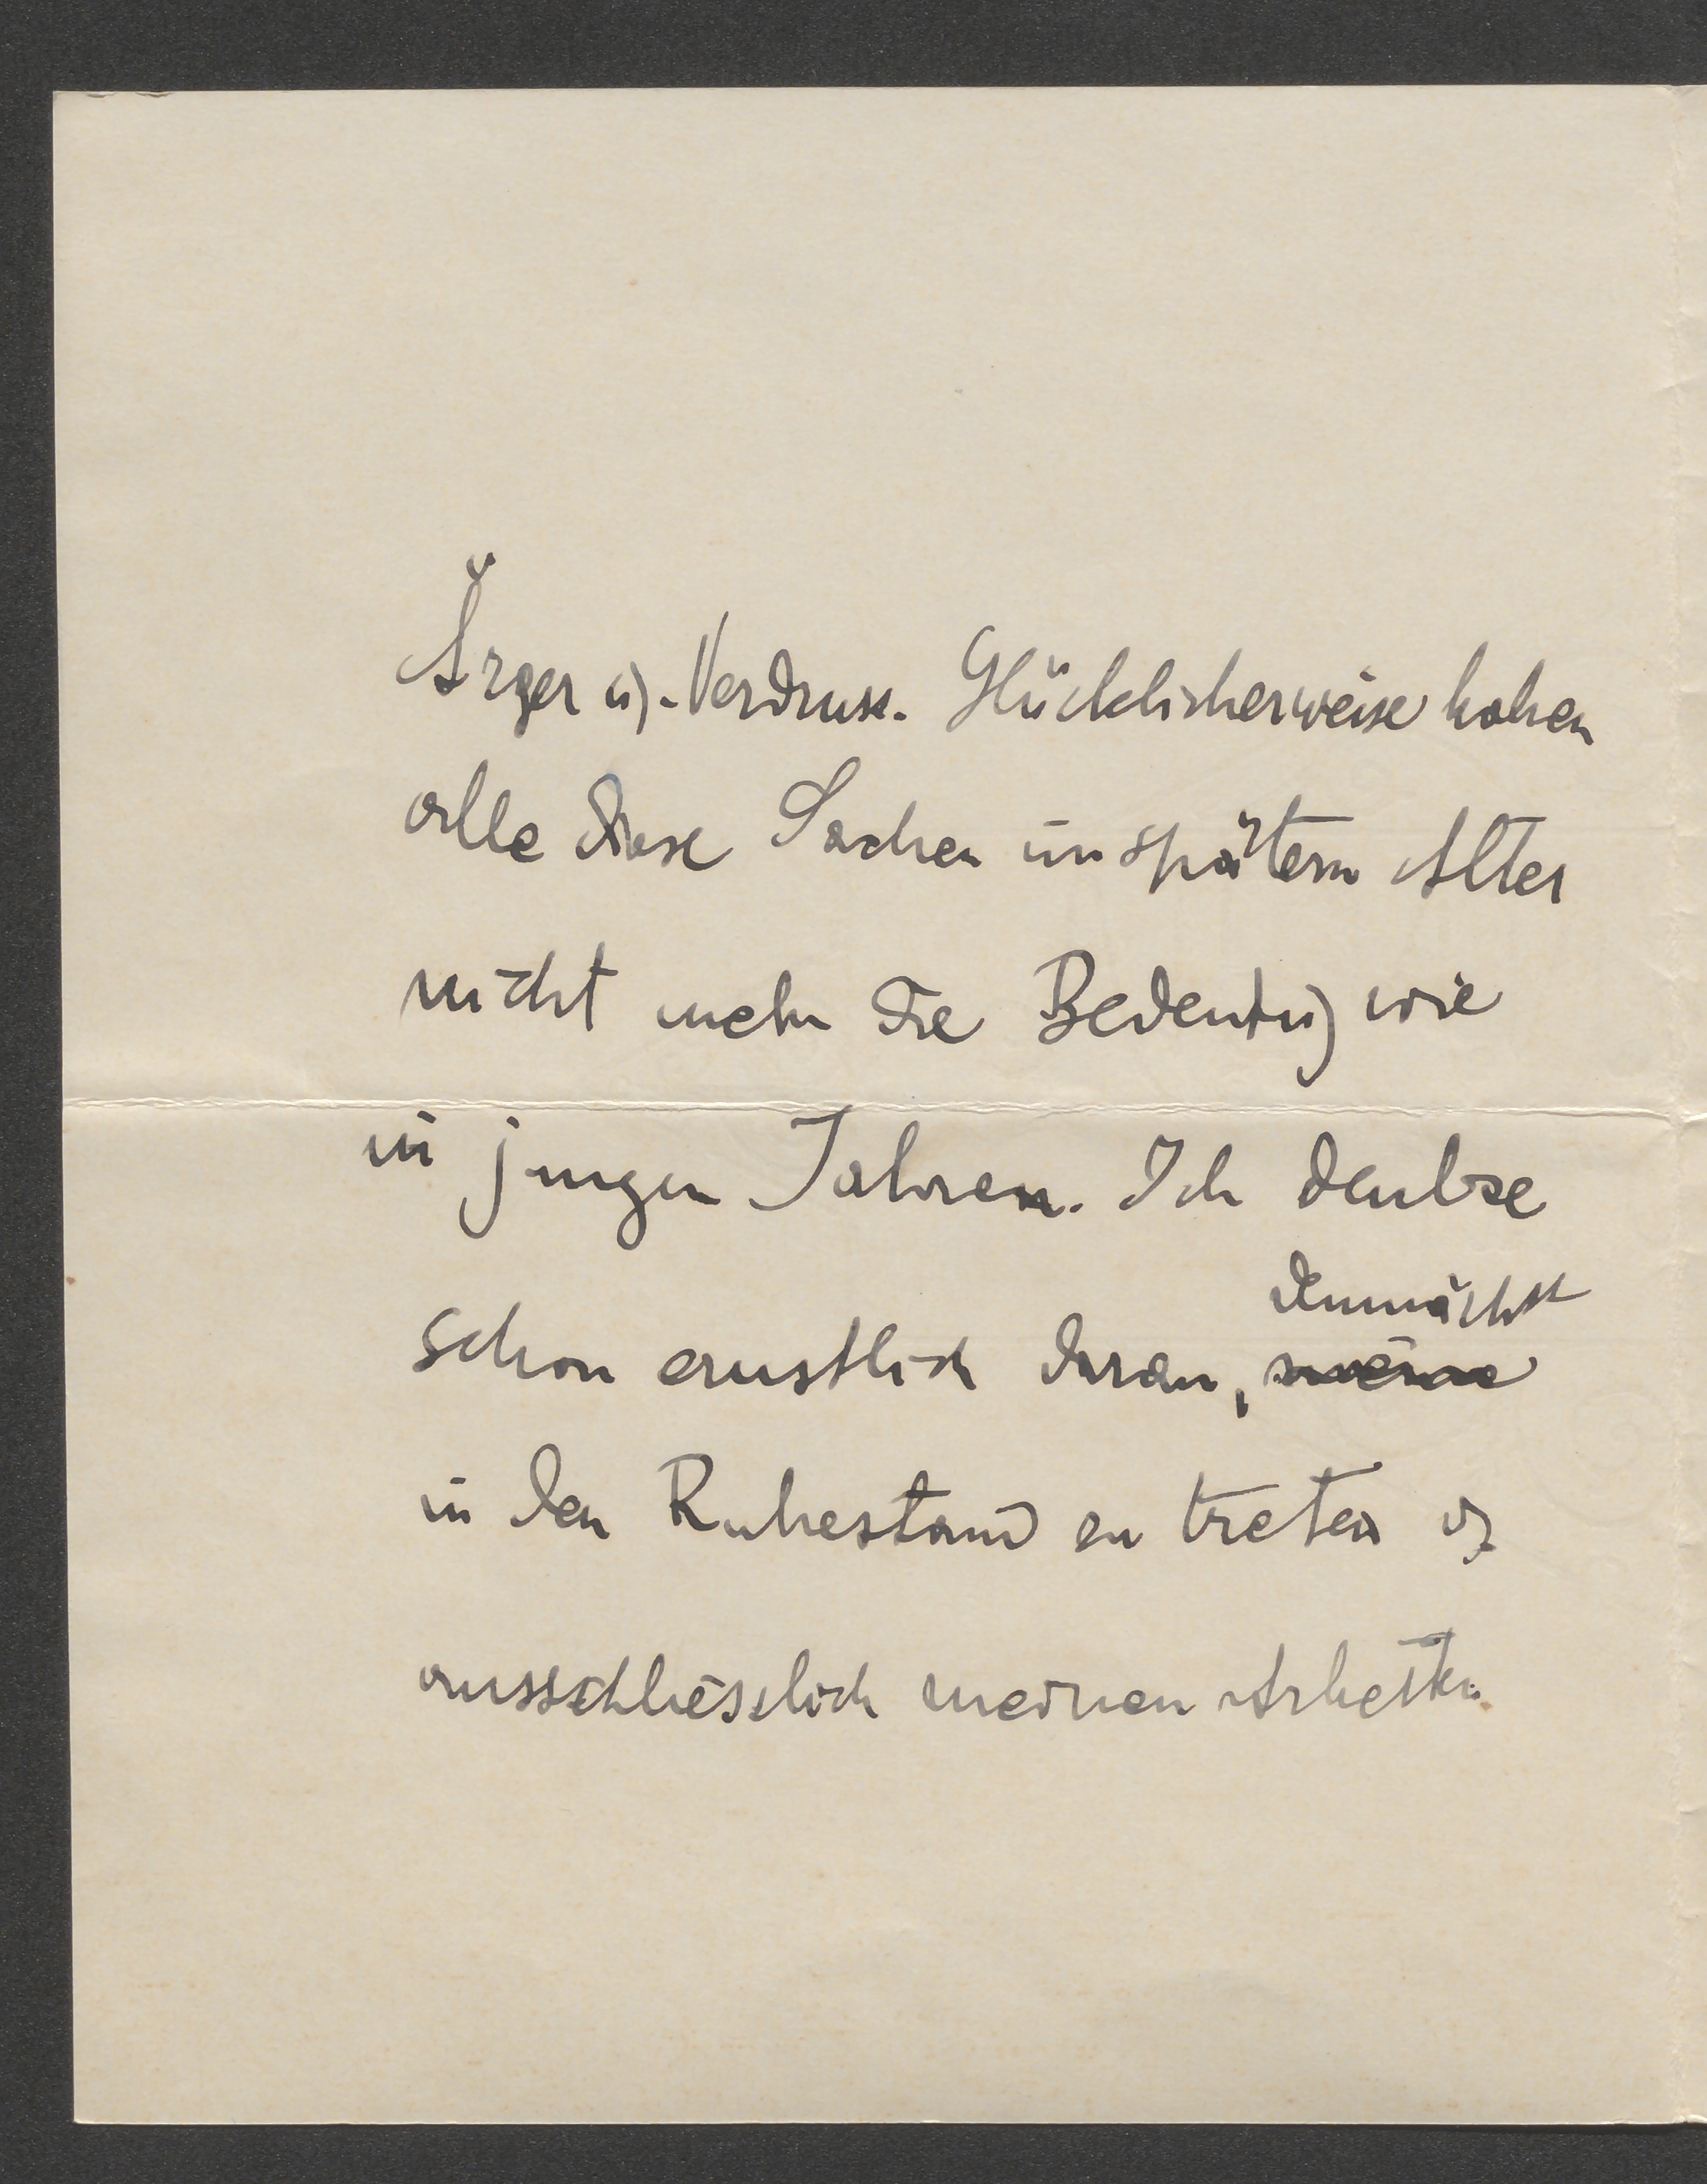 Ärger u. Verdruss. Glücklicherweise haben
alle diese Sachen im spätern Alter
nicht mehr die Bedeutung wie
in jungen Jahren. Ich denke
demnächst
schon ernstlich daran, meine
in den Ruhestand zu treten u.
ausschliesslich meinen Arbeiten